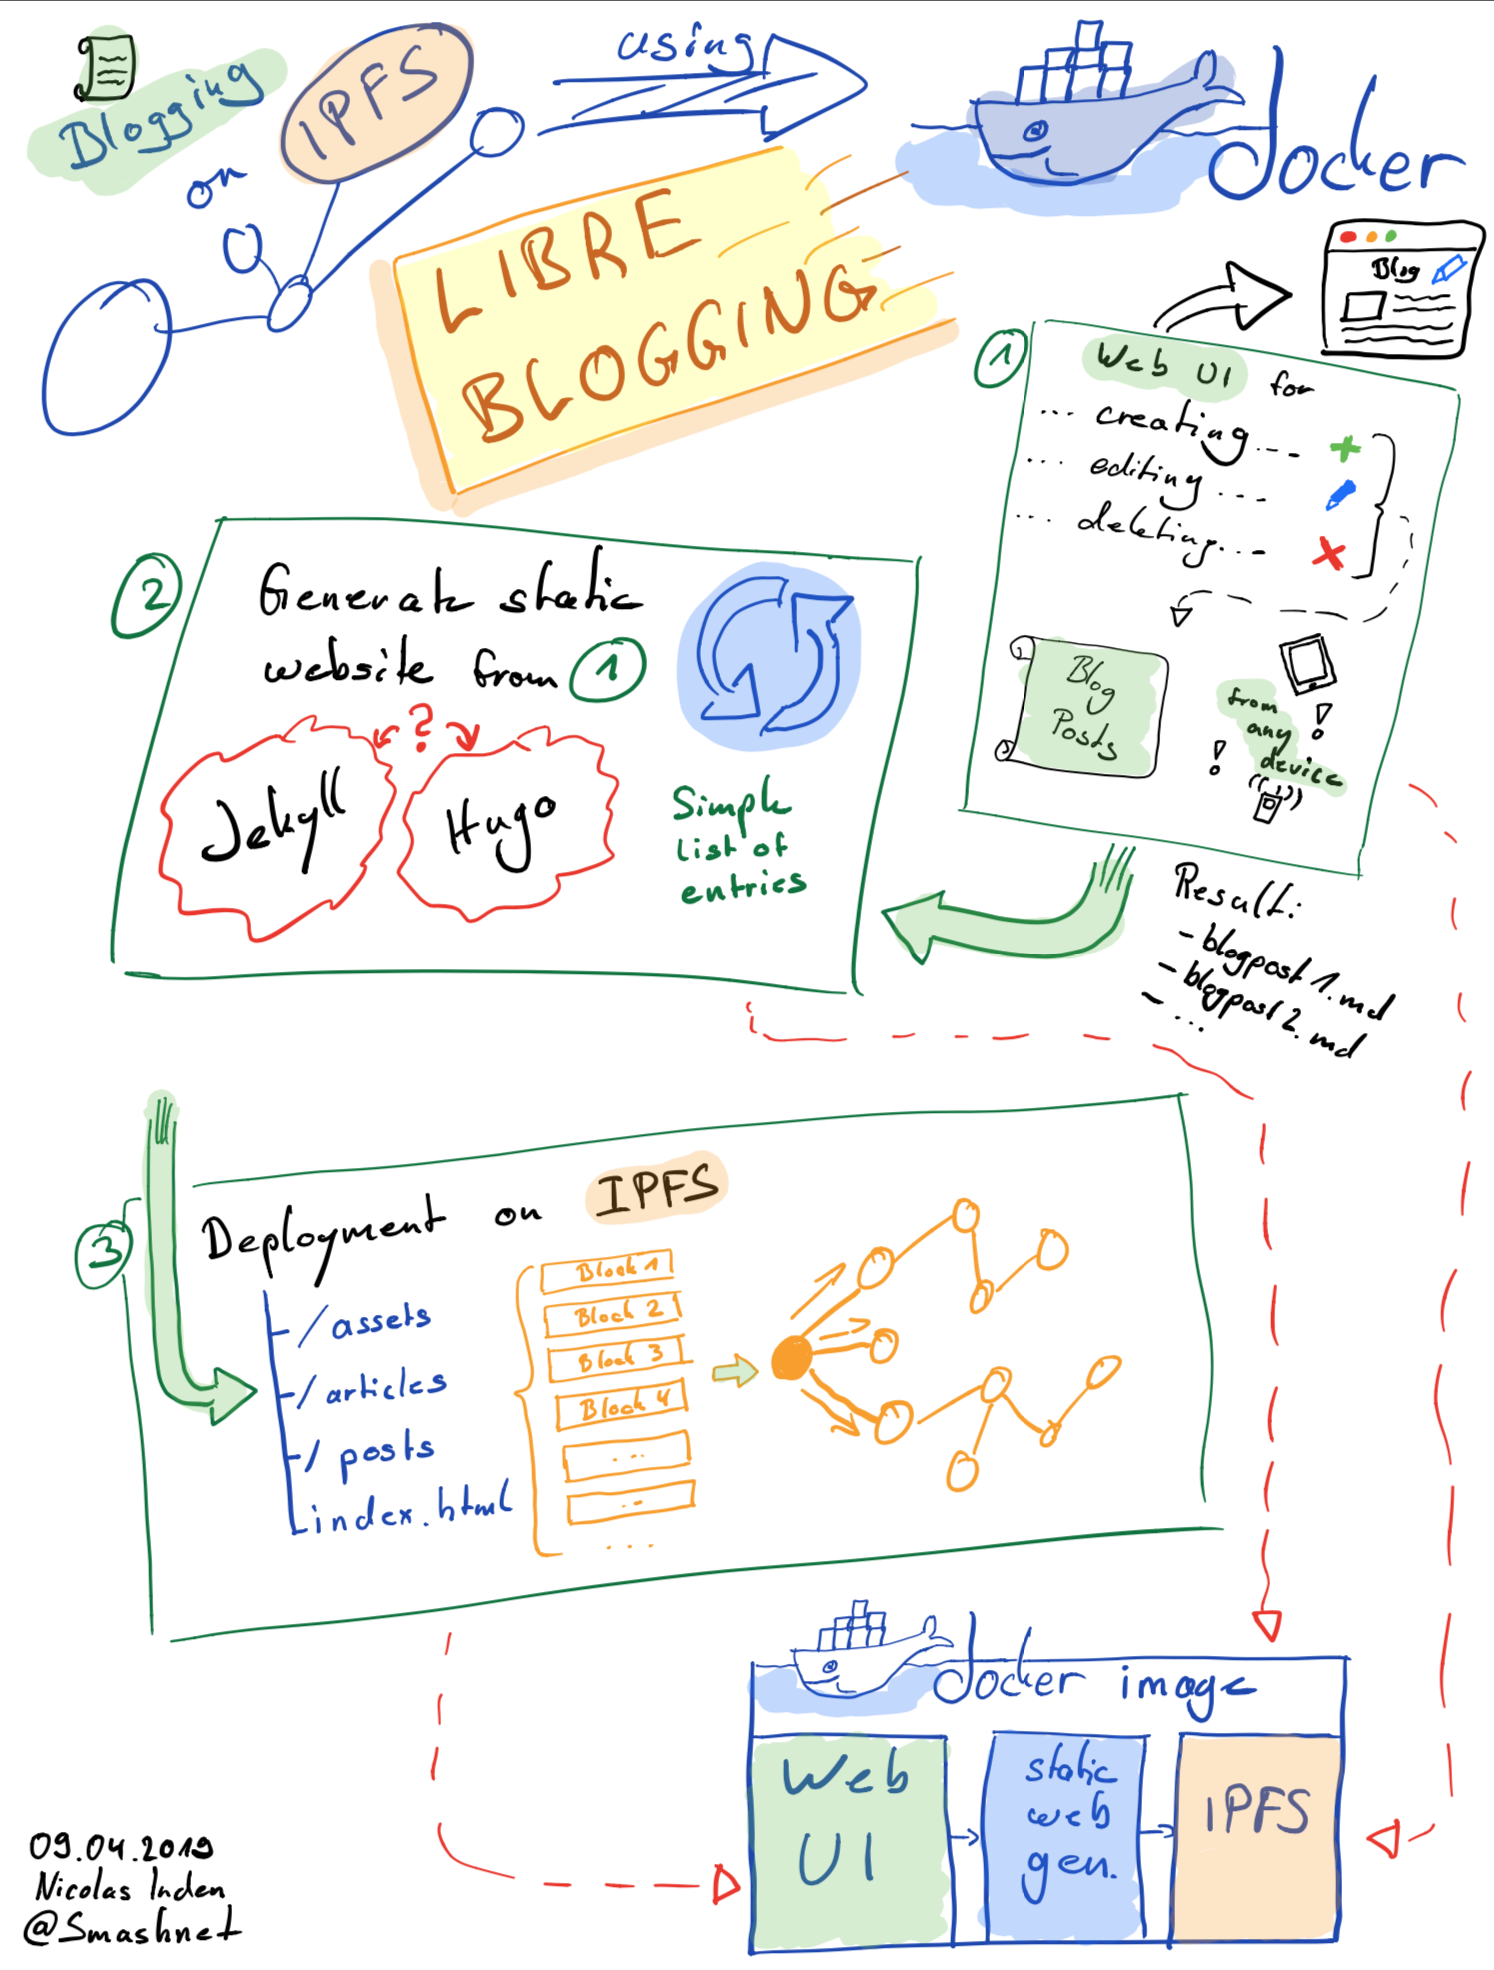 Blogging
on
IPFS
using
docker
LIBRE
BLOGGING
Blog
1
Web UI for
... creating ...
... editing ...
... deleting ...
Blog
Posts
from
any
device
Result:
- blogpost 1.md
- blogpost 2.md
- ...
2
Generate static
website from 1
? 
Jekyll
Hugo
Simple
list of
entries
3
Deployment on IPFS
/assets
/articles
/posts
index.html
Block 1
Block 2
Block 3
Block 4
...
...
....
docker image
Web
UI
static
web
gen.
IPFS
09.04.2019
Nicolas Inden
@Smashnet